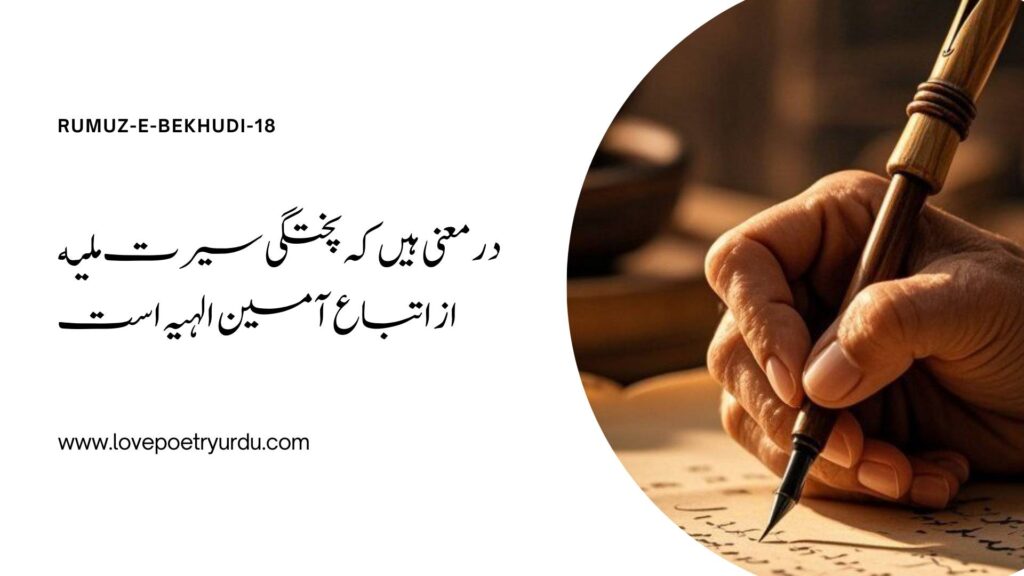 RUMUZ-E-BEKHUDI-18
در معنی ہیں کہ پختگی سیرت ملیہ
از اتباع آمین الہیہ است
www.lovepoetryurdu.com